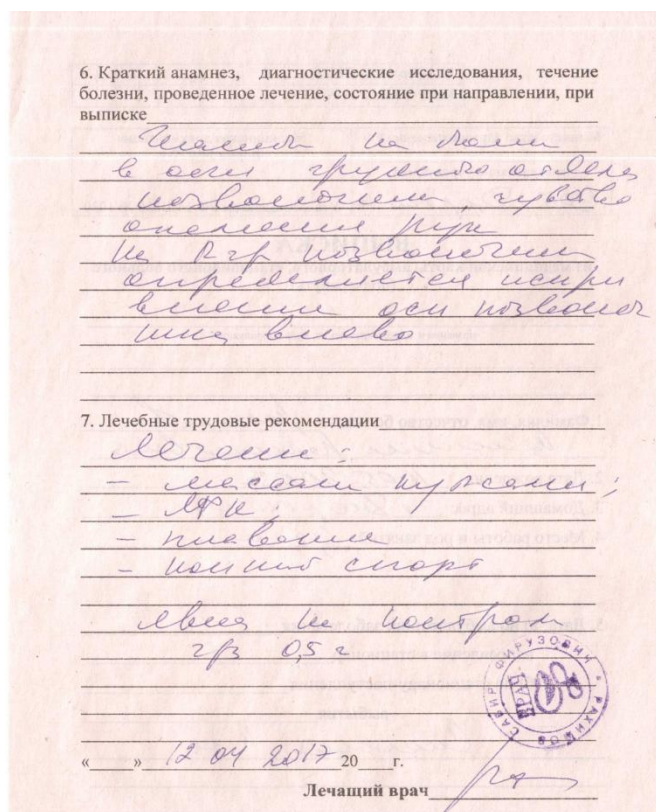 6. Краткий анамнез, диагностические исследования, течение
болезни, проведенное лечение, состояние при направлении, при
выписке
Жалобы на боли
в оси грудного отдела
позвоночника, чувство
онемения рук
На Rгр позвоночника
определяется искри
вление оси позвоноч
ника влево
7. Лечебные трудовые рекомендации
Лечение:
- массаж курсами;
- ЛФК;
- плавание
- конный спорт
Явка на контроль
ч/з 0,5 г
САБИР ФИРУЗОВИЧ РАХИМОВ
ВРАЧ
« » 12 04 2017 20 г.
Лечащий врач